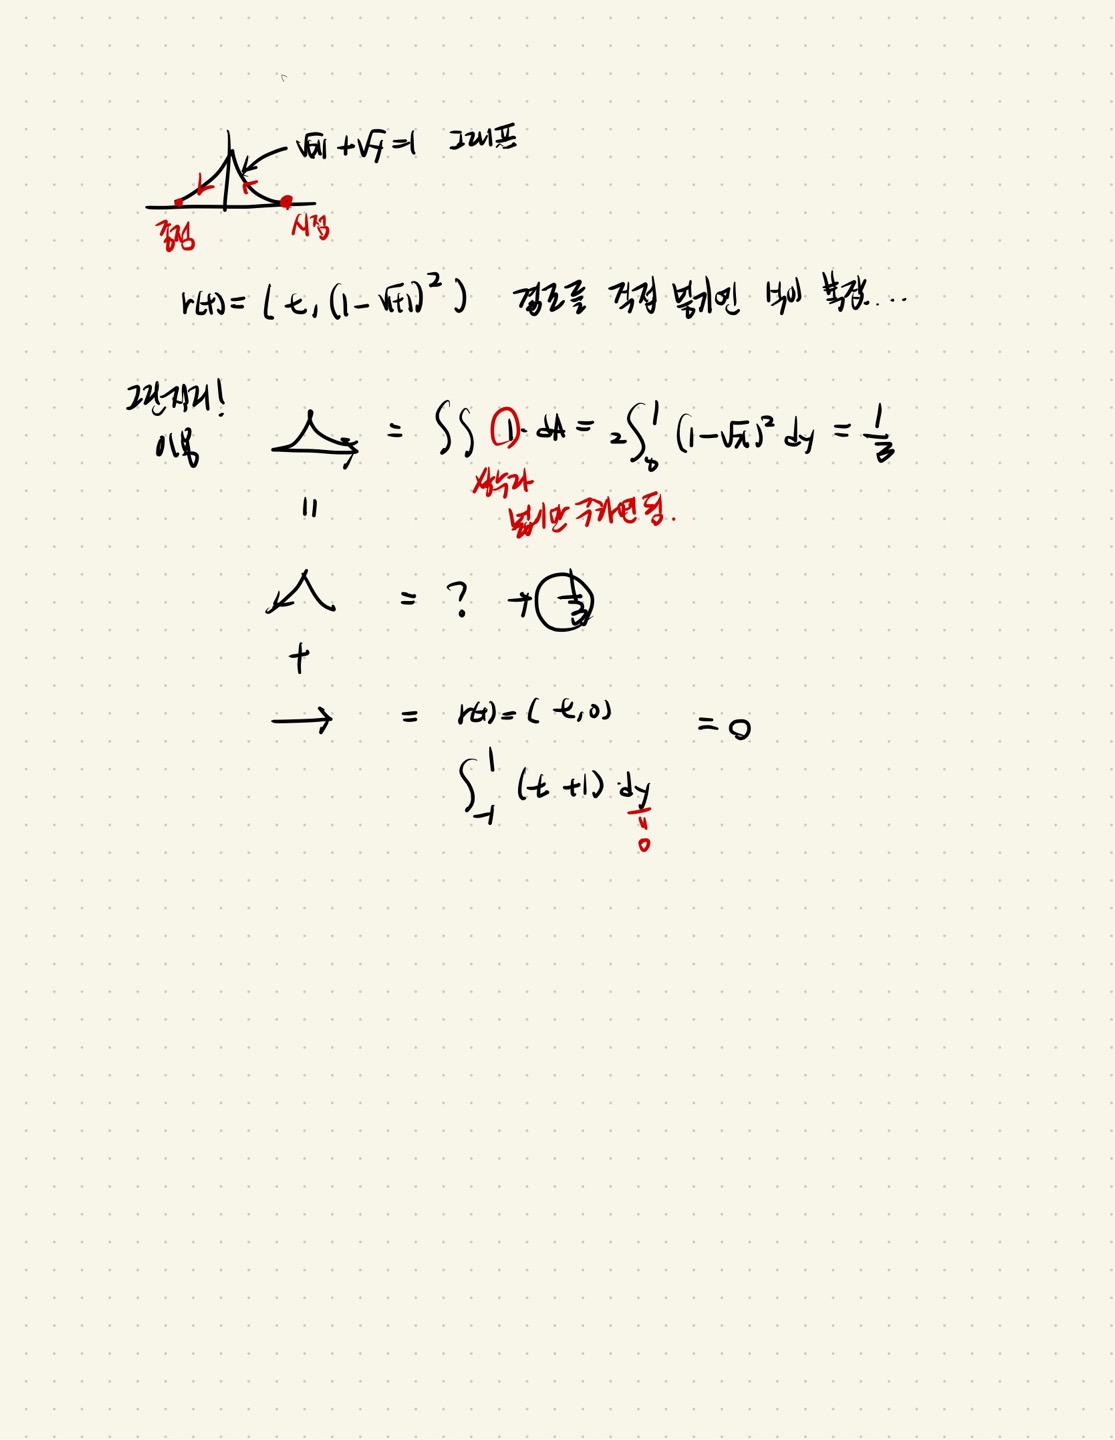 √|x| + √y = 1 그래프
종점
시점
r(t) = ( t, (1-√|t|)² ) 경로를 직접 넣기엔 식이 복잡...
그린정리!
이용
= ∫∫ 1· dA = 2∫₀¹ (1-√x)² dy = 1/3
상수라
넓이만 구하면 됨.
=
= ? → 1/3
+
→ = r(t) = ( t, 0) = 0
∫₋₁¹ (t +1) dy
= 0